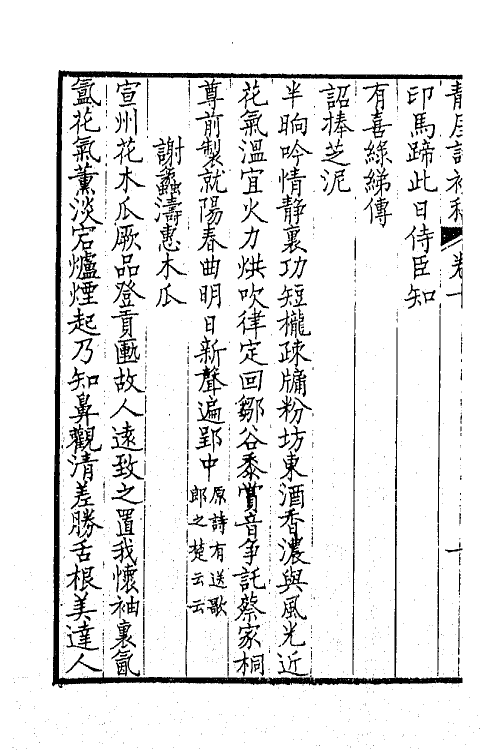 詩初 卷
印馬蹄此日侍臣知
有喜綠綈傳
詔捧芝泥
半晌吟情静裏功短櫳疎牖粉坊東酒香濃與風光近
花氣溫宜火力烘吹律定回鄒谷黍賞音争託蔡家桐
尊前製就陽春曲明日新聲遍郢中 原詩有送歌
郎之楚云云
謝蠡濤惠木瓜
宣州花木瓜厥品登貢匭故人遠致之置我懷袖裏氤
氳花氣薰淡宕爐煙起乃知鼻觀清差勝舌根美達人